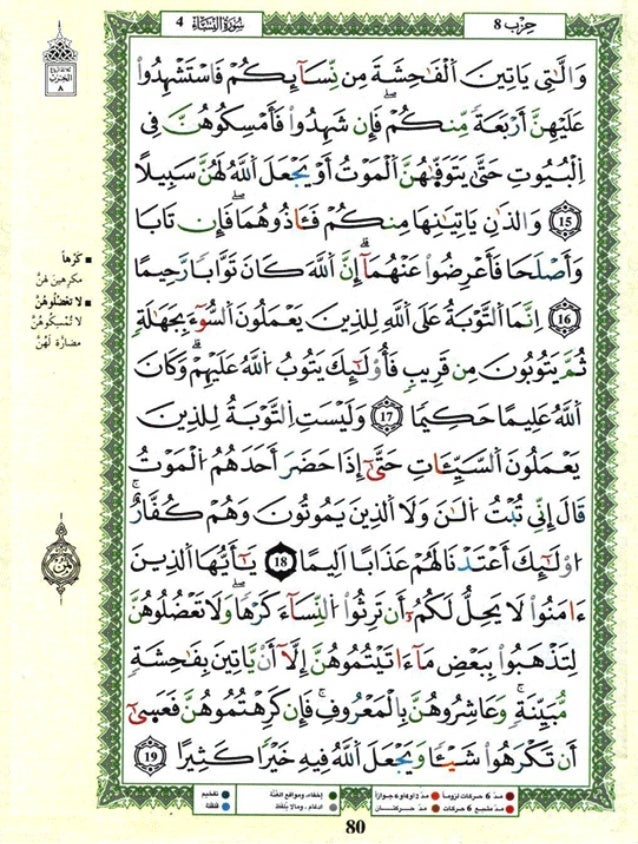 حِزْب 8
سُورَةُ النِّسَاءِ 4
وَالَّٰتِي يَاتِينَ اَ۬لْفَٰحِشَةَ مِن نِّسَآئِكُمْ فَاسْتَشْهِدُواْ
عَلَيْهِنَّ أَرْبَعَةٗ مِّنكُمْۖ فَإِن شَهِدُواْ فَأَمْسِكُوهُنَّ فِي
اِ۬لْبُيُوتِ حَتَّىٰ يَتَوَفّٰىٰهُنَّ اَ۬لْمَوْتُ أَوْ يَجْعَلَ اَ۬للَّهُ لَهُنَّ سَبِيلاٗ
15 وَالذَٰنِ يَاتِيَٰنِهَا مِنكُمْ فَـَٔاذُوهُمَاۖ فَإِن تَابَا
وَأَصْلَحَا فَأَعْرِضُواْ عَنْهُمَآۗ إِنَّ اَ۬للَّهَ كَانَ تَوَّاباٗ رَّحِيماٗ
16 اِنَّمَا اَ۬لتَّوْبَةُ عَلَى اَ۬للَّهِ لِلذِينَ يَعْمَلُونَ اَ۬لسُّوٓءَ بِجَهَٰلَةٖ
ثُمَّ يَتُوبُونَ مِن قَرِيبٖ فَأُوْلَٰٓئِكَ يَتُوبُ اُ۬للَّهُ عَلَيْهِمْۗ وَكَانَ
اَ۬للَّهُ عَلِيماً حَكِيماٗ 17 وَلَيْسَتِ اِ۬لتَّوْبَةُ لِلذِينَ
يَعْمَلُونَ اَ۬لسَّيِّـَٔاتِ حَتَّىٰٓ إِذَا حَضَرَ أَحَدَهُمُ اُ۬لْمَوْتُ
قَالَ إِنِّي تُبْتُ اُ۬لَٰنَ وَلَا اَ۬لذِينَ يَمُوتُونَ وَهُمْ كُفَّارٌۚ
اوْلَٰٓئِكَ أَعْتَدْنَا لَهُمْ عَذَاباً اَلِيماٗ 18 يَٰٓأَيُّهَا اَ۬لذِينَ
ءَامَنُواْ لَا يَحِلُّ لَكُمُۥٓ أَن تَرِثُواْ اُ۬لنِّسَآءَ كَرْهاٗۖ وَلَا تَعْضُلُوهُنَّ
لِتَذْهَبُواْ بِبَعْضِ مَآ ءَاتَيْتُمُوهُنَّ إِلَّآ أَنْ يَّاتِينَ بِفَٰحِشَةٖ
مُّبَيِّنَةٖۚ وَعَاشِرُوهُنَّ بِالْمَعْرُوفِۚ فَإِن كَرِهْتُمُوهُنَّ فَعَسَىٰٓ
أَن تَكْرَهُواْ شَيْـٔاٗ وَيَجْعَلَ اَ۬للَّهُ فِيهِ خَيْراٗ كَثِيراٗ 19
كَرْهاً
مكرهين لهنّ
لا تَعْضُلُوهُنَّ
لا تُمْسِكُوهُنَّ
مضارَّة لَهُنَّ
مدّ 6 حركات لزوماً
مدّ 2 أو 4 أو 6 جوازاً
إخفاء، ومواقع الغُنَّة
تفخيم
مدّ مشبع 6 حركات
مدّ حركتان
ادغام، ومالا يُلفَظ
قلقلة
80